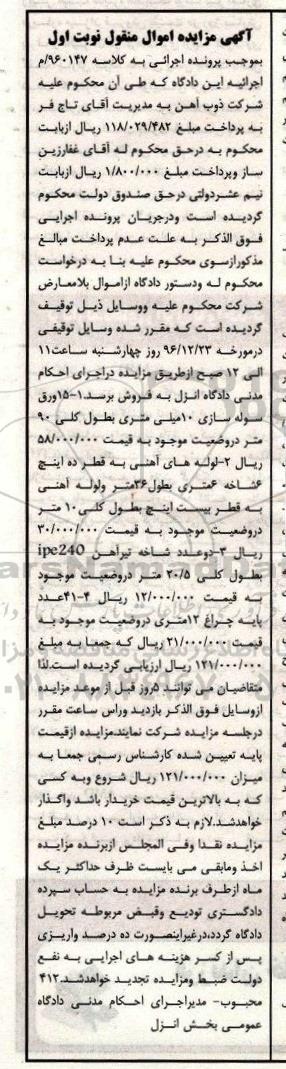 آگهی مزایده اموال منقول نوبت اول
بموجب پرونده اجرائی به کلاسه ۹۶۰۱۴۷/م
اجرائیه این دادگاه که طی آن محکوم علیه
شرکت ذوب آهن به مدیریت آقای تاج فر
به پرداخت مبلغ ۱۱۸/۰۲۹/۴۸۲ ریال ازبابت
محکوم به درحق محکوم له آقای غفارزین
ساز وپرداخت مبلغ ۱/۸۰۰/۰۰۰ ریال ازبابت
نیم عشردولتی درحق صندوق دولت محکوم
گردیده است ودرجریان پرونده اجرایی
فوق الذکر به علت عدم پرداخت مبالغ
مذکورازسوی محکوم علیه بنا به درخواست
محکوم له ودستور دادگاه ازاموال بلامعارض
شرکت محکوم علیه ووسایل ذیل توقیف
گردیده است که مقرر شده وسایل توقیفی
درمورخه ۹۶/۱۲/۲۳ روز چهارشنبه ساعت۱۱
الی ۱۲ صبح ازطریق مزایده دراجرای احکام
مدنی دادگاه انزل به فروش برسد.۱-۱۵ورق
سوله سازی ۱۰میلی متری بطول کلی ۹۰
متر دروضعیت موجود به قیمت ۵۸/۰۰۰/۰۰۰
ریال ۲-لوله های آهنی به قطر ده اینچ
۶شاخه ۶متری بطول۳۶متر ولوله آهنی
به قطر بیست اینچ بطول کلی۱۰ متر
دروضعیت موجود به قیمت ۳۰/۰۰۰/۰۰۰
ریال ۳-دوعدد شاخه تیرآهن ipe240
بطول کلی ۲۰/۵ متر دروضعیت موجود
به قیمت ۱۲/۰۰۰/۰۰۰ ریال ۴-۴۱عدد
پایه چراغ ۱۲متری دروضعیت موجود به
قیمت ۲۱/۰۰۰/۰۰۰ ریال که جمعا به مبلغ
۱۲۱/۰۰۰/۰۰۰ ریال ارزیابی گردیده است.لذا
متقاضیان می توانند ۵روز قبل از موعد مزایده
ازوسایل فوق الذکر بازدید وراس ساعت مقرر
درجلسه مزایده شرکت نمایند.مزایده ازقیمت
پایه تعیین شده کارشناس رسمی جمعا به
میزان ۱۲۱/۰۰۰/۰۰۰ ریال شروع وبه کسی
که به بالاترین قیمت خریدار باشد واگذار
خواهدشد.لازم به ذکر است ۱۰ درصد مبلغ
مزایده نقدا وفی المجلس ازبرنده مزایده
اخذ ومابقی می بایست ظرف حداکثر یک
ماه ازطرف برنده مزایده به حساب سپرده
دادگستری تودیع وقبض مربوطه تحویل
دادگاه گردد،درغیراینصورت ده درصد واریزی
پس از کسر هزینه های اجرایی به نفع
دولت ضبط ومزایده تجدید خواهدشد.۴۱۲
محبوب- مدیراجرای احکام مدنی دادگاه
عمومی بخش انزل